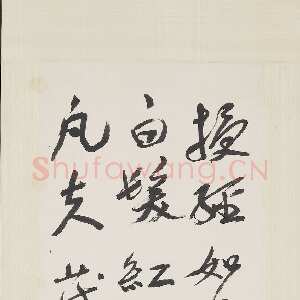 經如
白髮紅
凡夫
Shufawang.CN